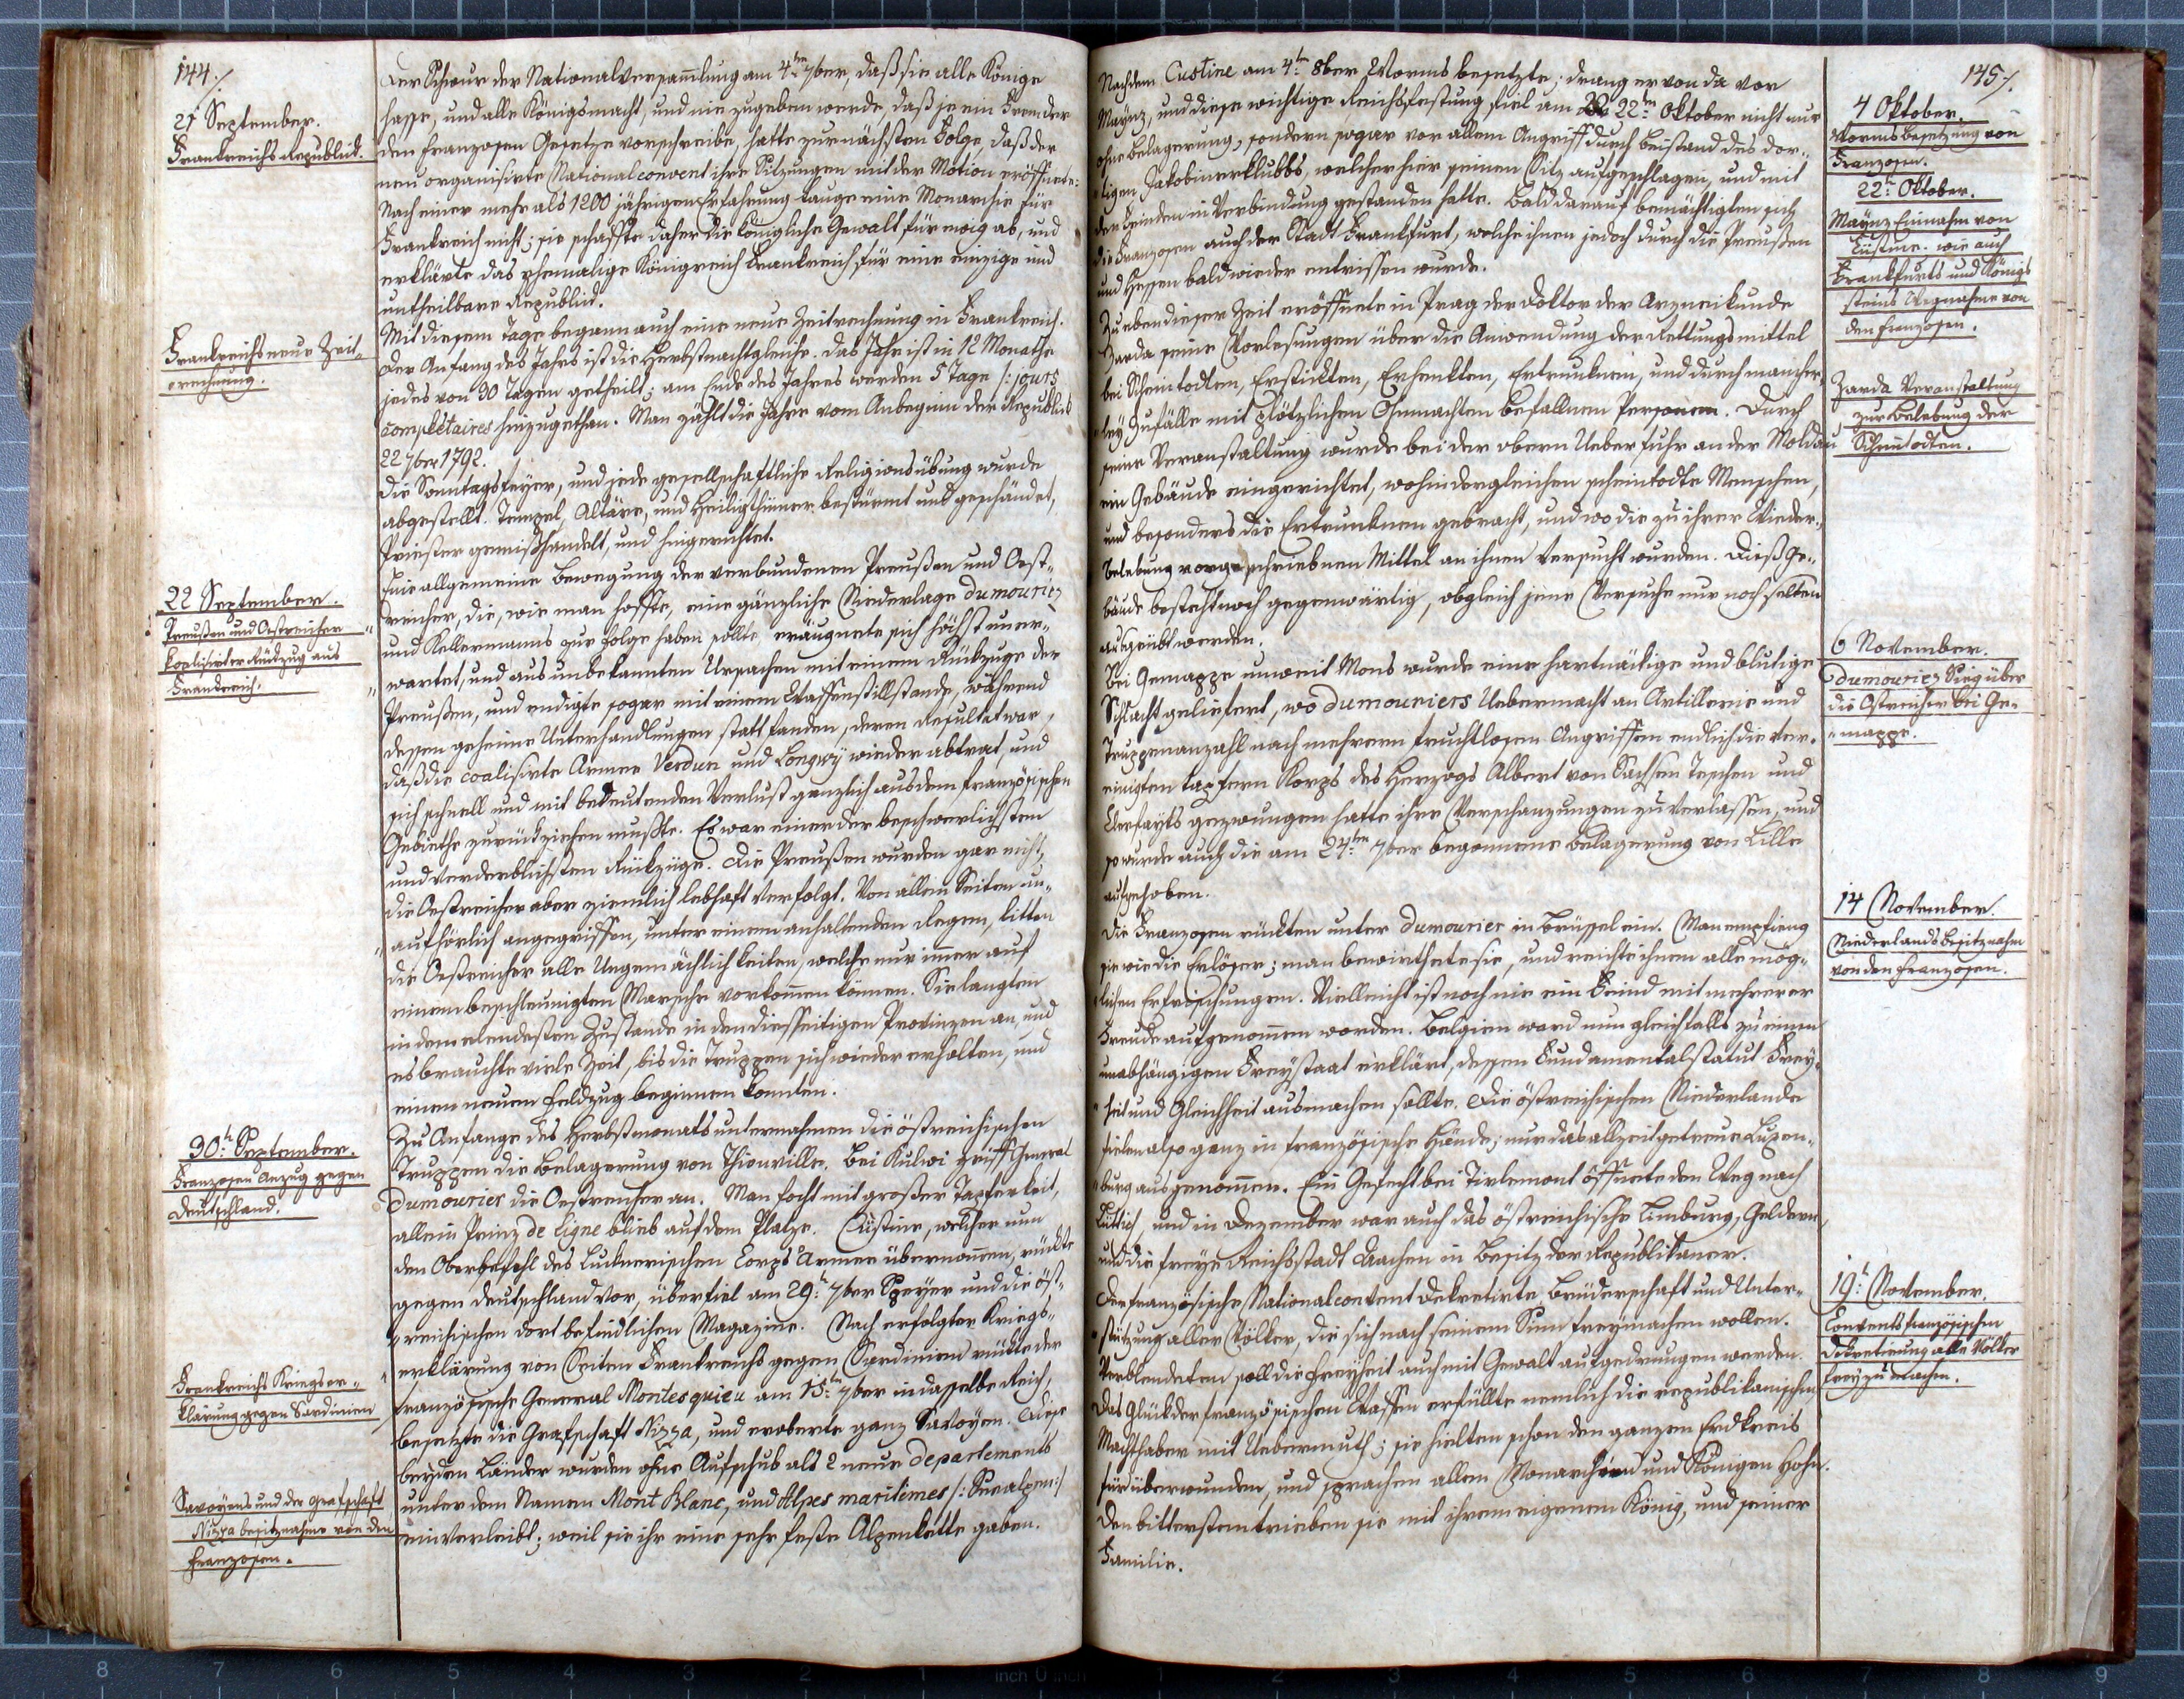 144./.
21 September.
Frankreichs Republick.
Der Schwur der Nationalversammlung am 4ten 7ber, daß sie alle Könige
hasse, und alle Königsmacht, und nie zugeben werde, daß je ein Fremder
den Franzosen Gesetze vorschreibe, hatte zur nächsten Folge, daß der
neu organisirte Nationalconvent ihre Sitzungen mit der Motion eröffnete:
Nach einer mehr als 1200 jährigen Erfahrung tauge eine Monarchie für
Frankreich nicht; sie schaffte daher die königliche Gewalt für ewig ab, und
erklärte das ehemalige Königreich Frankreich für eine einzige und
untheilbare Republick.
Frankreichs neue Zeit„
„rechnung.
Mit diesem Tage begann auch eine neue Zeitrechnung in Frankreich.
Der Anfang des Jahrs ist die Herbstnachtgleiche. Das Jahr ist in 12 Monathe
jedes von 30 Tagen getheilt; am Ende des Jahres werden 5 Tage /: jours
complétaires hinzugethan. Man zählt die Jahre vom Anbeginn der Republick
22 7ber 1792.
Die Sonntagsfeyer, und jede gesellschaftliche Religionsübung wurde
abgestellt. Tempel, Altäre, und Heiligthümer bestürmt und geschändet,
Priester gemißhandelt, und hingerichtet.
22 September.
Preußen und Oestreicher
koalisirter Rückzug aus
Frankreich.
Eine allgemeine Bewegung der verbundenen Preußen und Oest„
reicher, die, wie man hoffte, eine gänzliche Niederlage dumouriez
„ und Kellermanns zur Folge haben sollte, eräugnete sich höchst uner„
„ wartet, und aus unbekannten Ursachen mit einem Rückzuge der
Preußen, und endigte sogar mit einem Waffenstillstande, während
dessen geheime Unterhandlungen statt fanden, deren Resultat war,
daß die coalisirte Armee Verdun und Longwy wieder abtrat, und
sich schnell und mit bedeutenden Verlust gänzlich aus dem französischen
Gebiethe zurückziehen mußte. Es war einer der beschwerlichsten
und verderblichsten Rückzüge. Die Preußen wurden gar nicht,
die Oestreicher aber ziemlich lebhaft verfolgt. Von allen Seiten un„
„ aufhörlich angegriffen, unter einem anhaltenden Regen, litten
die Oestreicher alle Ungemächlichkeiten, welche nur immer auf
einem beschleunigten Marsche vorkommen können. Sie langten
in dem elendesten Zustande in den diesseitigen Provinzen an, und
es brauchte viele Zeit, bis die Truppen sich wieder erholten, und
einen neuen Feldzug beginnen konnten.
30t September.
Franzosen Anzug gegen
Deutschland.
Zu Anfange des Herbstmonats unternahmen die östreichischen
Truppen die Belagerung von Thionville. Bei griff General
Dumourier die Oestreicher an. Man focht mit großer Tapferkeit,
allein Prinz de Ligne blieb auf dem Platze. Cüstine, welcher nun
den Oberbefehl des Lucknerischen Corps Armee übernommen, rückte
gegen Deutschland vor, überfiel am 29t 7ber Speyer und die öst„
„reichischen dort befindlichen Magazine. Nach erfolgter Kriegs„
erklärung von Seiten Frankreichs gegen Sardinien rückte der
Frankreichs Kriegser„
klärung gegen Sardinien
französische General Montesquieu am 15ten 7ber in dasselbe Reich,
besetzte die Grafschaft Nizza, und eroberte ganz Savoyen. Diese
beyden Länder wurden ohne Aufschub als 2 neue departements
unter dem Namen Mont Blanc, und Alpes maritimes /: Seealpen :/
einverleibt; weil sie ihr eine sehr feste Alpenkette gaben.
Savoyens und der Grafschaft
Nizza besitznahme von den
Franzosen.
145./.
4 Oktober.
Worms besetzung von
Franzosen.
22t Oktober.
Maynz Einnahm von
Cüstine. wie auch
Frankfurts und Königs
steins Wegnahme von
den Franzosen.
Nachdem Custine am 4ten 8ber Worms besetzte; drang er von da vor
Maynz, und diese wichtige Reichsfestung fiel am 22ten Oktober nicht nur
ohne Belagerung, sondern sogar vor allem Angriff durch Beistand des dor„
„tigen Jakobinerklubbs, welcher hier seinen Sitz aufgeschlagen, und mit
den Feinden in Verbindung gestanden hatte. Bald darauf bemächtigten sich
die Franzosen auch der Stadt Frankfurt, welche ihnen jedoch durch die Preußen
und Hessen bald wieder entrissen wurde.
Zu eben dieser Zeit eröffnete in Prag der Doktor der Arzneikunde
Zarda seine Vorlesungen über die Anwendung der Rettungsmittel
bei Scheintodten, Erstickten, Erhenkten, Ertrunknen, und durch mancher„
„ley Zufälle mit plötzlichen Ohnmachten befallnen Personen. Durch
seine Veranstaltung wurde bei der obern Ueberfuhr an der Moldau
ein Gebäude eingerichtet, wohin dergleichen scheintodte Menschen,
und besonders die Ertrunknen gebracht, und wo die zu ihrer Wieder„
belebung vorgeschriebnen Mittel an ihnen versucht wurden. Dieß Ge„
bäude besteht noch gegenwärtig, obgleich jene Versuche nur noch selten
ausgeübt werden.
Zarda Veranstaltung
zur Belebung der
Scheintodten.
6 November.
Dumouriez Sieg über
die Ostreicher bei Ge„
„mappe.
Bei Gemappe unweit Mons wurde eine hartnäckige und blutige
Schlacht geliefert, wo Dumouriers Uebermacht an Artillerie und
Truppenanzahl nach mehrern fruchtlosen Angriffen endlich die ver„
einigten tapfern Korps des Herzogs Albert von Sachsen Teschen und
Clerfayts gezwungen hatte ihre Verschanzungen zu verlassen, und
so wurde auch die am 24ten 7ber begonnene Belagerung von Lille
aufgehoben.
14 November.
Niederlands besitznahm
von den Franzosen.
Die Franzosen rückten unter Dumourier in Brüssel ein. Man empfieng
sie wie die Erlöser; man bewirthete sie, und reichte ihnen alle mög„
„lichen Erfrischungen. Vielleicht ist noch nie ein Feind mit mehrerer
Freude aufgenommen worden. Belgien ward nun gleichfalls zu einem
unabhängigen Freystaat erklärt, dessen Fundamentalstatut Frey„
„heit und Gleichheit ausmachen sollte. Die östreichischen Niederlande
fielen also ganz in französische Hände; nur das allzeit getreue Luxem„
„burg ausgenommen. Ein Gefecht bei Tirlemont öffnete den Weg nach
Lüttich, und in Dezember war auch das östreichische Limburg, Geldern,
und die freye Reichsstadt Aachen in Besitz der Republikaner.
19t November.
Convents französischen
Dekretirung alle Völker
frey zu machen.
Der französische Nationalconvent dekretirte Brüderschaft und Unter„
„stützung aller Völker, die sich nach seinem Sinn freymachen wollen.
Verblendeten soll die Freyheit auch mit Gewalt aufgedrungen werden.
Das Glück der französischen Waffen erfüllte nemlich die republikanischen
Machthaber mit Uebermuth; sie hielten schon den ganzen Erdkreis
für überwunden, und sprachen allen Monarchien und Königen Hohn.
Den bittersten trieben sie mit ihrem eigenen König, und seiner
Familie.